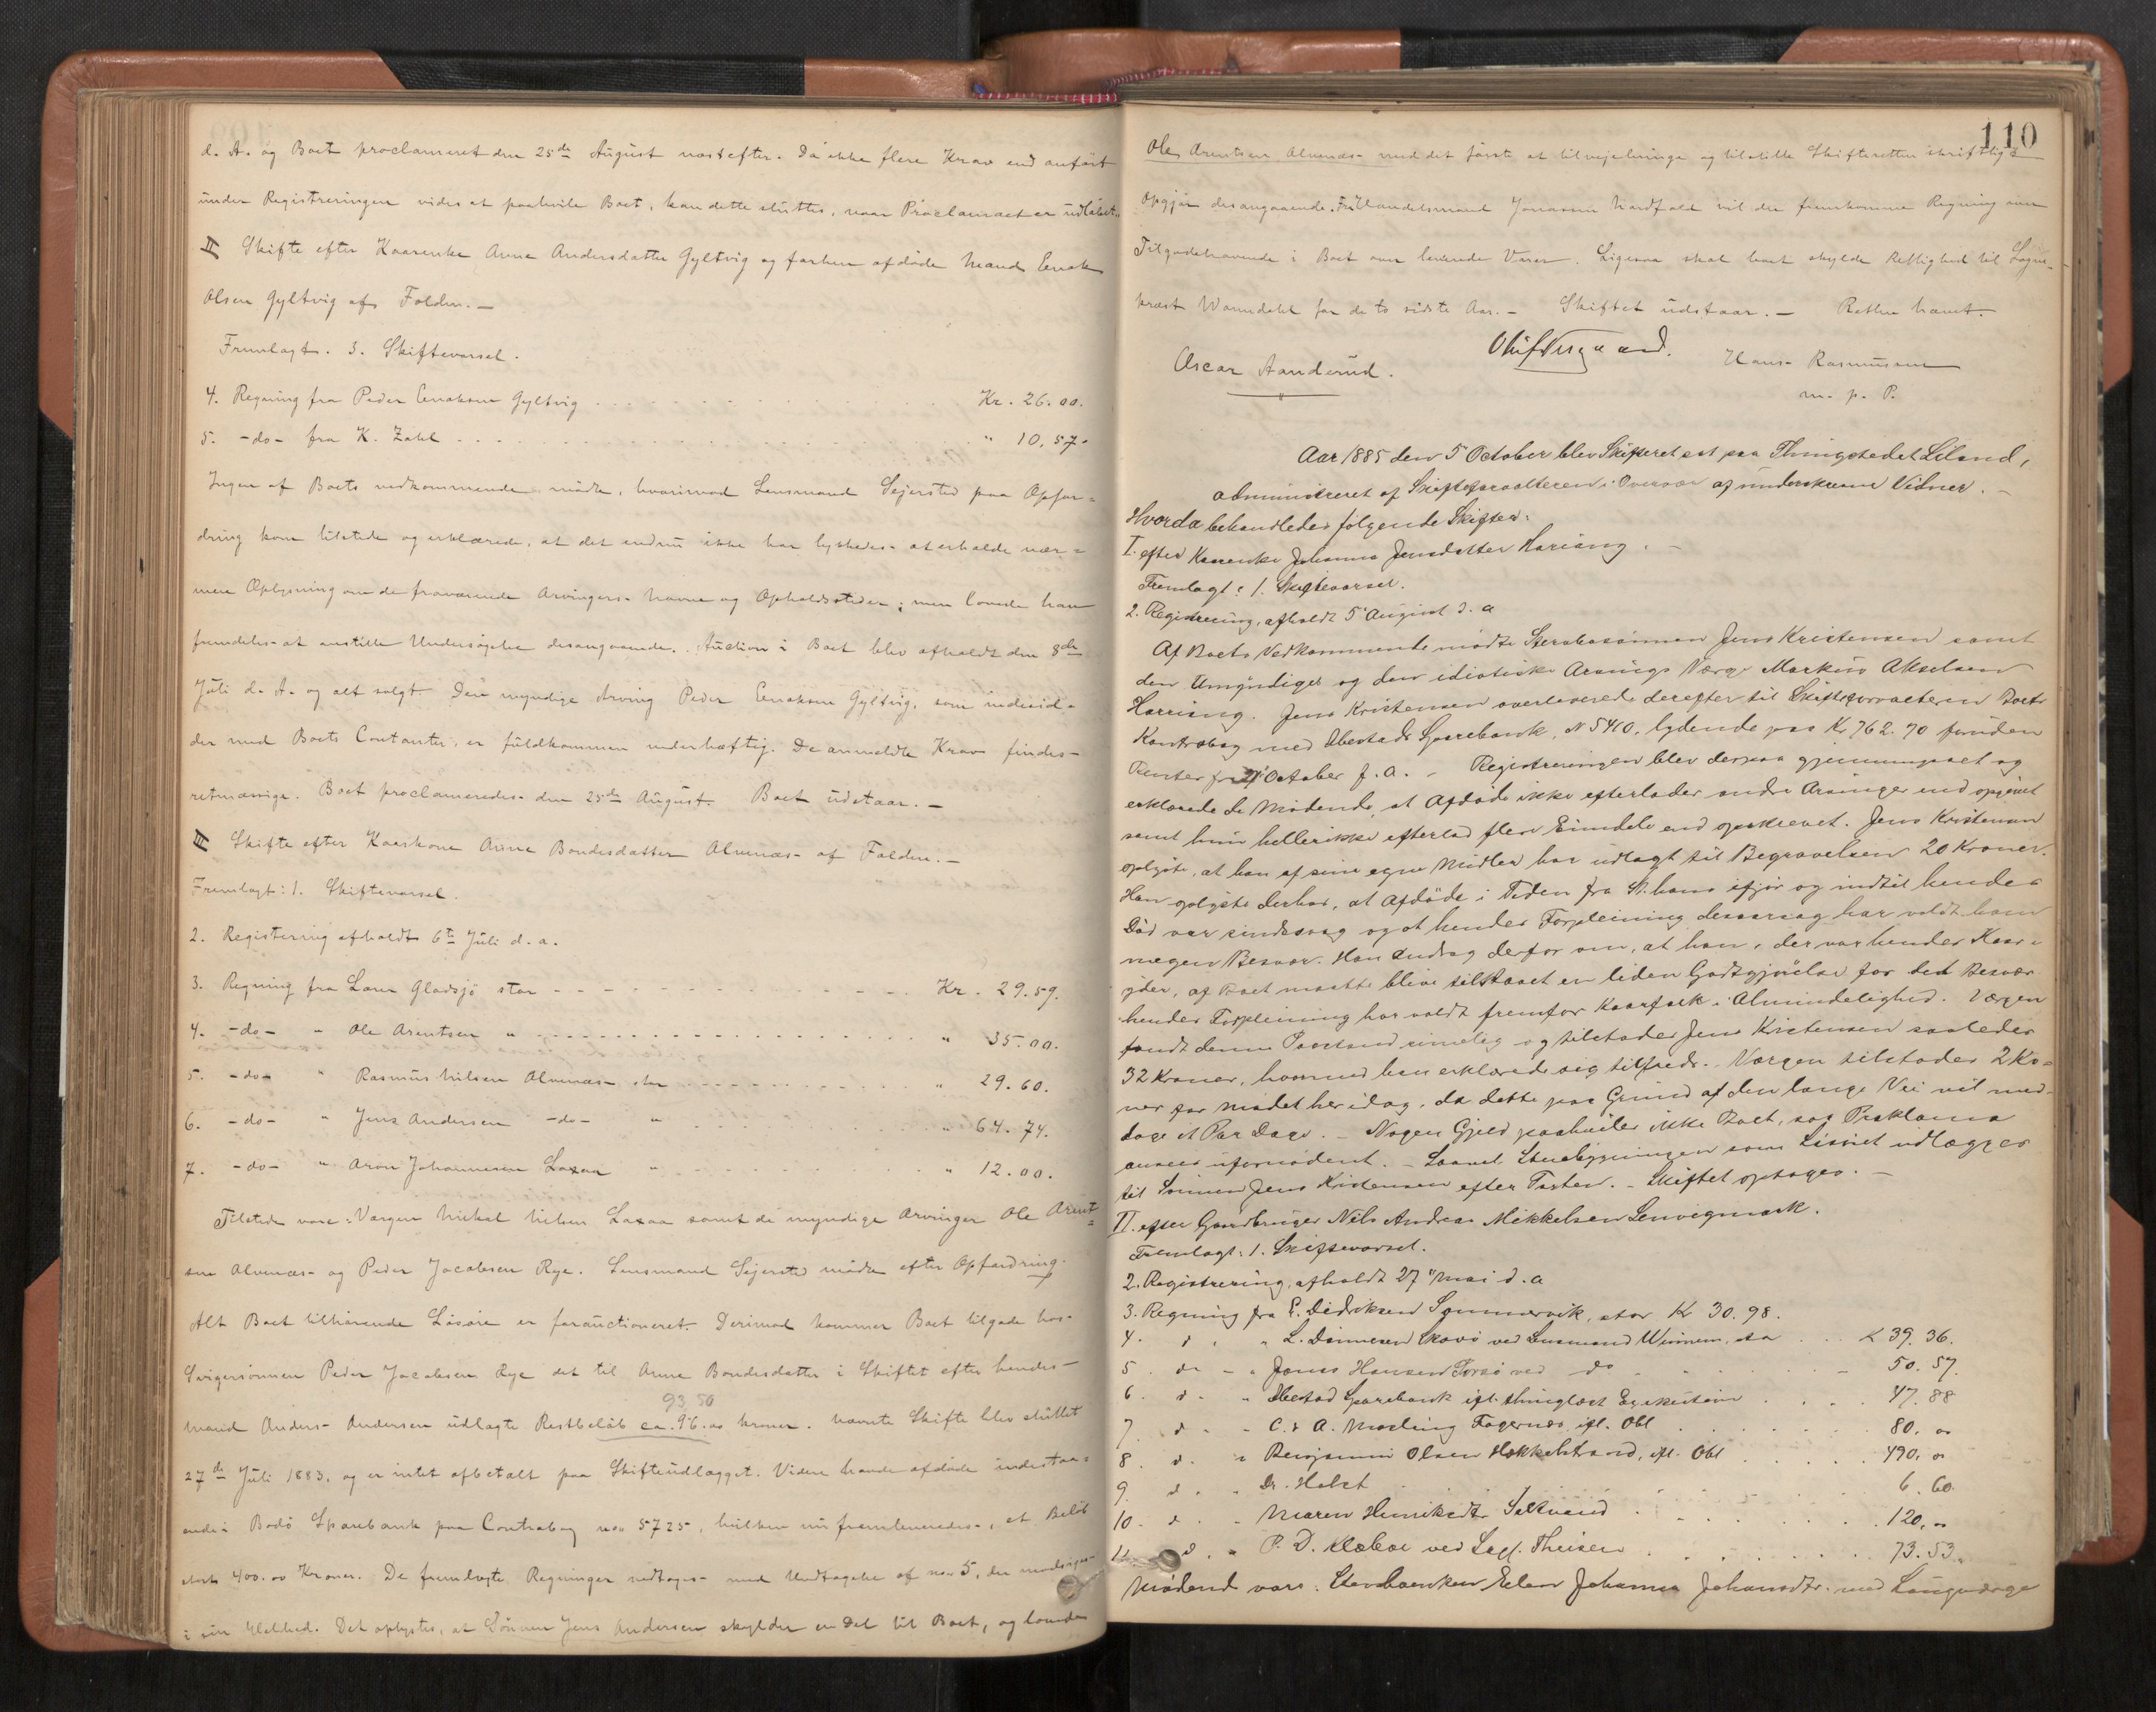 d. A. og Boet proclameret den 25de August næstefter. Da ikke flere Krav end anført
under Registreringen vides at paahvile Boet, kan dette sluttes, naar Proclamaet er udløbet.
II Skifte efter Kaarenke Anna Andersdatter Gyltvig og forhen afdøde Mand Enok
Olsen Gyltvig af Folden. —
Fremlagt. 3. Skiftevarsel.
4. Regning fra Peder Enoksen Gyltvig Kr. 26.00.
5. -do- fra K. Zahl " 10.57.
Ingen af Boets vedkommende mødte, hvorimod Lensmand Sejersted paa Opfor=
dring kom tilstede og erklærede, at det endnu ikke har lykkedes at erholde nær=
mere Oplysning om de fraværende Arvingers Navne og Opholdssteder; men lovede han
fremdeles at anstille Undersøgelse desangaaende. Auction i Boet blev afholdt den 8de
Juli d. A. og alt solgt. Den myndige Arving Peder Enoksen Gyltvig, som indesid=
der med Boets Contanter, er fuldkommen vederhæftig. De anmeldte Krav findes
retmæssige. Boet proclameredes den 25de August. Boet udstaar. —
III Skifte efter Kaarkone Anne Bondesdatter Alvenæs af Folden. —
Fremlagt: 1. Skiftevarsel.
2. Registering afholdt 6te Juli d. a.
3. Regning fra Lars Gladsjø stor Kr. 29.59.
4. -do- " Ole Arentsen " " 35.00.
5. -do- " Rasmus Nilsen Alvenæs stor " 29.60.
6. -do- " Jens Andersen -do- " " 64.74.
7. -do- " Aron Johannesen Laxaa " " 12.00.
Tilstede vare: Værgen Mikal Nielsen Laxaa samt de myndige Arvinger Ole Arent=
sen Alvenæs og Peder Jacobsen Rye. Lensmand Sejersted mødte efter Opfordring.
Alt Boet tilhørende Løsøre er forauctioneret. Derimod kommer Boet tilgode hos
Svigersønnen Peder Jacobsen Rye det til Anne Bondesdatter i Skiftet efter hendes
93,50
Mand Anders Andersen udlagte Restbeløb ca. 96.00 kroner. Nævnte Skifte blev sluttet
27de Juli 1883, og er intet afbetalt paa Skifteudlægget. Videre havde afdøde indestaa=
ende i Bodø Sparebank paa Contrabog No. 5725, hvilken nu fremleveredes, et Beløb
stort 400.00 Kroner. De fremlagte Regninger vedtoges med Undtagelse af No. 5, der modsiges
i sin Helhed. Det oplystes, at Sønnen Jens Andersen skylder en Del til Boet, og lovede
110
Ole Arentsen Alvenæs med det første at tilvejebringe og tilstille Skifteretten skriftligt
Opgjør desangaaende. Handelsmand Jonassen Nordfold vil der fremkomme Regning om
Tilgodehavende i Boet om leverede Varer. Ligesaa skal boet skylde Rettighed til Sogne-
præst Warndahl for de to sidste Aar. — Skiftet udstaar. — Retten hævet.
Oscar Aanderud. Hans Rasmussen
m. p. P.
Aar 1885 den 5 October blev Skifteret sat paa Thingstedet Liland,
administreret af Skifteforvalteren i Overvær af underskrevne Vidner. —
Hvorda behandledes følgende Skifter:
I. efter Kaarenke Johanna Jensdatter Hariang. —
Fremlagt: 1. Skiftevarsel.
2. Registrering, afholdt 5 August d. a
Af Boets Vedkommende mødte Stervbosønnen Jens Kristensen samt
den Umyndiges og den idiotiske Arvings Værge Markus Akselsen
Harriang. Jens Kristensen overleverede derefter til Skifteforvalteren Boets
Kontrabog med Ibestads Sparebank, N 5410, lydende paa Kr. 762.70 foruden
Renter fra October f. a. — Registreringen blev derpaa gjennemgaaet og
erklærede de Mødende, at Afdøde ikke efterlader andre Arvinger end opgivet
samt hun heller ikke efterlod flere Eiendele end opskrevet. Jens Kristensen
oplyste, at han af sine egne Midler har udlagt til Begravelsen 20 Kroner.
Han oplyste derhos, at Afdøde i Tiden fra St. hans ifjor og indtil hendes
Død var sindssvag og at hendes Forpleining desaarsag har voldt ham
megen Besvær. Han androg derfor om, at han, der var hendes Kaar=
yder, af Boet maatte blive tilstaaet en liden Godtgjørelse for det Besvær
hendes Forpleining har voldt fremfor Kaarfolk i Almindelighed. Værgen
fandt denne Paastand rimelig og tilstodes Jens Kristensen saaledes
32 Kroner, hvormed han erklærede sig tilfreds. Værgen tilstodes 2 Kro=
ner for Mødet her idag, da dette paa Grund af den lange Vei vil med=
tage et Par Dage. — Nogen Gjeld paahviler ikke Boet, saa Proklama
ansees ufornødent. — Saavel Stuebygningen som Løsøret udlægges
til Sønnen Jens Kristensen efter Taxten. — Skiftet optages. —
II. efter Gaardbruger Nils Andreas Mikkelsen Lenvigmark.
Fremlagt: 1. Skiftevarsel.
2. Registrering, afholdt 27 Mai d. a
3. Regning fra E. Didriksen Sommervik, stor Kr 30.98.
4. d " " L. Dinnesen Skavø ved Lensmand Winnem, sta 39.36.
5. do - " Jonas Hansen Torsø ved do 50.57
6. d. " Ibestad Sparebank ifl. thinglæst Exekution 47.88
7. d. - C. & A. Mosling Fagernes ifl. Obl 80. 00
8. d. " Benjamin Olsen Hokkelstrand, ifl. Obl 490. 00
9. d. " Dr. Holst 6.60
10. d. " Maren Henriksdtr. Saltvand 120, 00
11. d. " P. D. Klæboe ved Sagf. Theisen 73.53.
Mødende vare: Stervboenken Johanna Johansdtr. med Laugværge